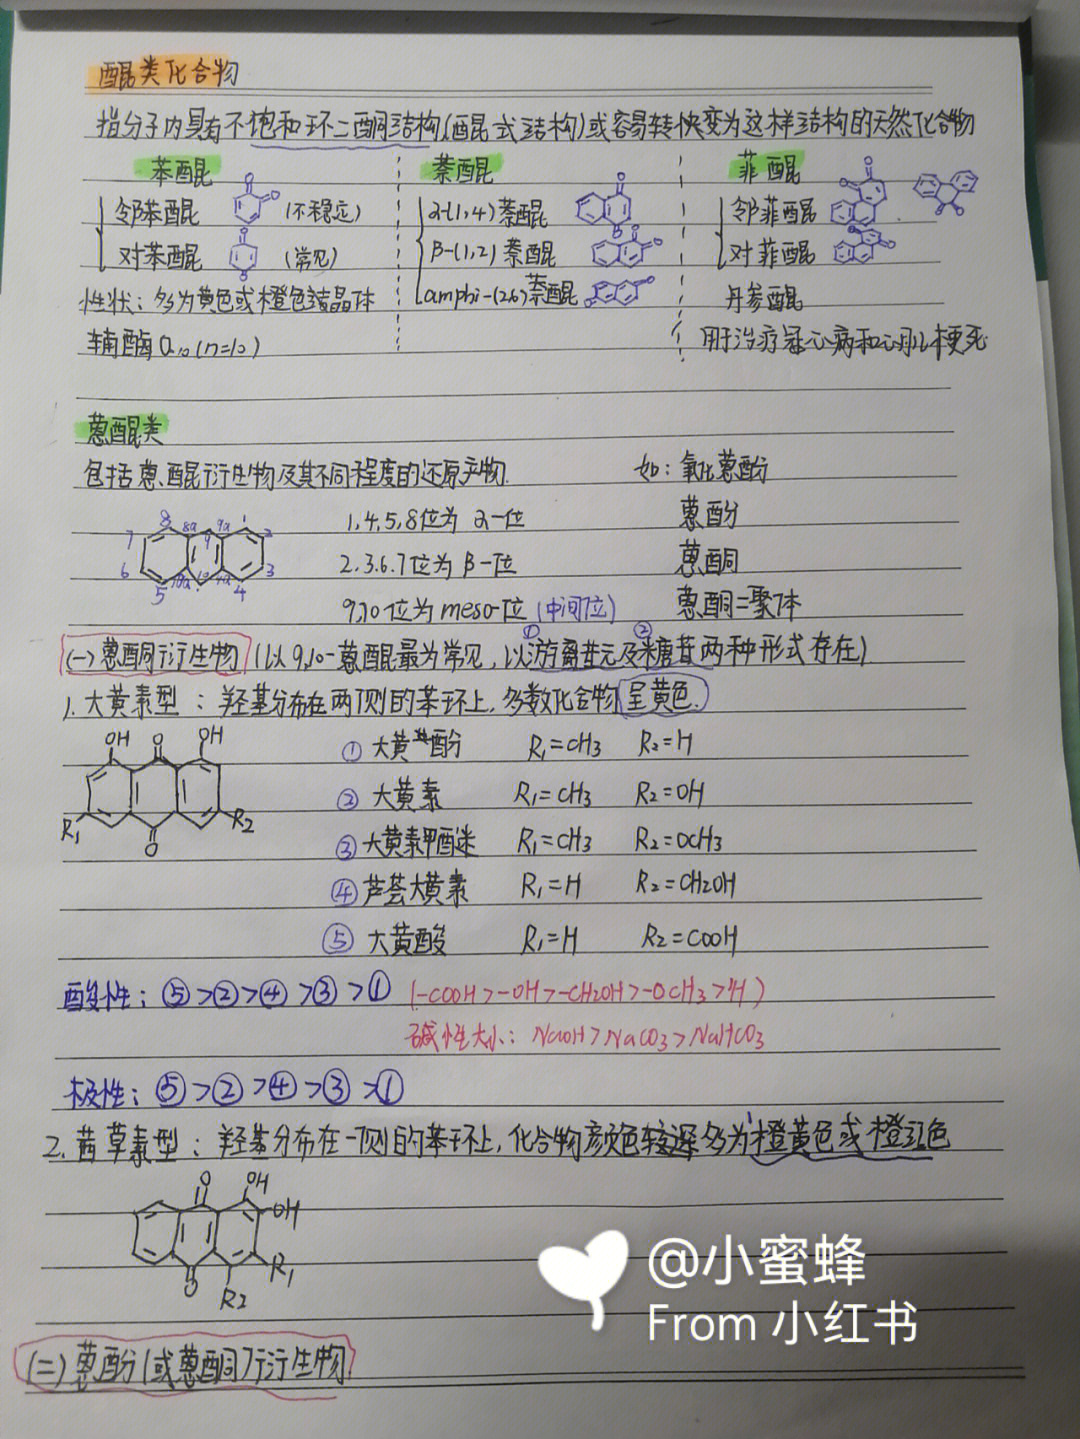 醌类化合物
指分子内具有不饱和环二酮结构(醌式结构)或容易转换变为这样结构的天然化合物
苯醌 萘醌 菲醌
邻苯醌 (不稳定) α-(1,4)萘醌 邻菲醌
对苯醌 (常见) β-(1,2)萘醌 对菲醌
性状：多为黄色或橙色结晶体 amphi-(2.6)萘醌 丹参醌
辅酶Q₁₀(n=10) 用于治疗冠心病和心肌梗死
蒽醌类
包括蒽醌衍生物及其不同程度的还原产物. 如：氧化蒽酚
1,4,5,8位为 α-位 蒽酚
2.3.6.7位为 β-位 蒽酮
9,10位为meso-位(中间位) 蒽酮二聚体
8 8a 9 9a 1 2
7 6 5 10a 10 4a 4 3
① ②
(一)蒽酮衍生物(以9,10-蒽醌最为常见,以游离苷元及糖苷两种形式存在)
1.大黄素型：羟基分布在两侧的苯环上,多数化合物呈黄色.
OH O OH
R₁ O R₂
①大黄酚 R₁=CH₃ R₂=H
②大黄素 R₁=CH₃ R₂=OH
③大黄素甲醚 R₁=CH₃ R₂=OCH₃
④芦荟大黄素 R₁=H R₂=CH2OH
⑤大黄酸 R₁=H R₂=COOH
酸性：⑤>②>④>③>① (-COOH>-OH>-CH2OH>-OCH3>H)
碱性大小：NaOH>NaCO3>NaHCO3
极性：⑤>②>④>③>①
2.茜草素型：羟基分布在一侧的苯环上,化合物颜色较深多为橙黄色或橙红色
O OH
OH
O R₂ R₁
(二)蒽酚(或蒽酮)衍生物
@小蜜蜂
From 小红书